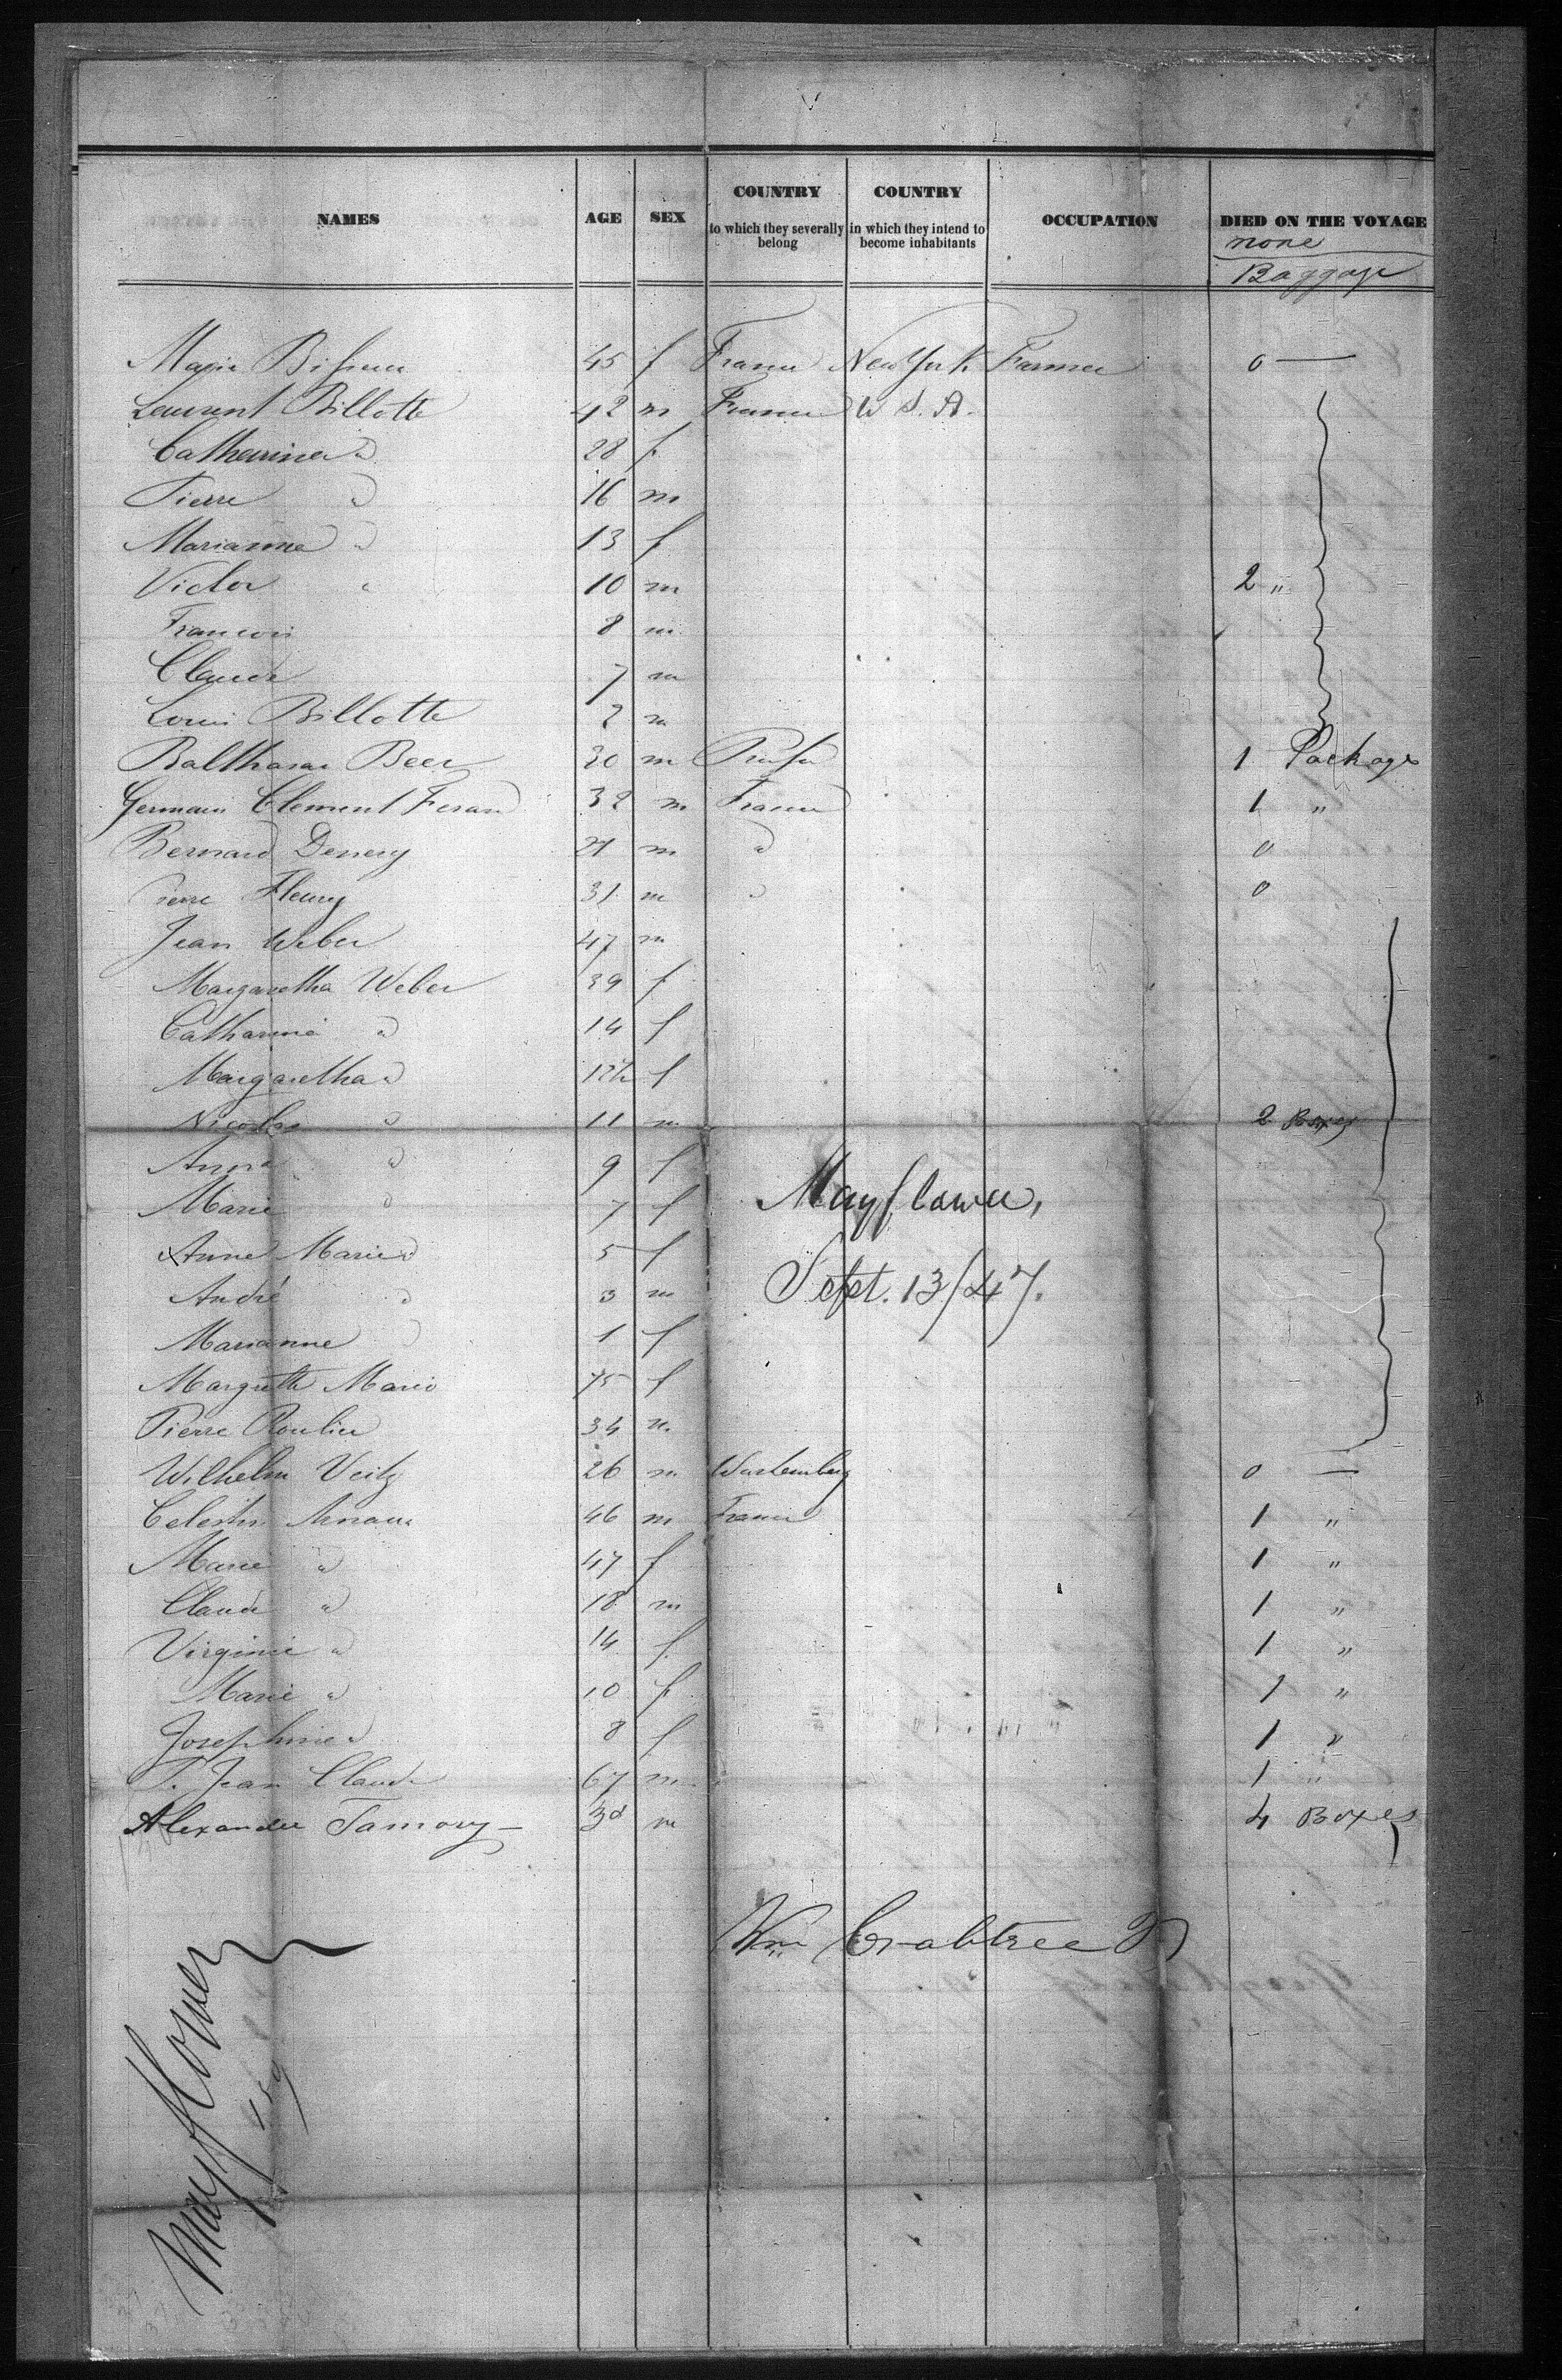 NAMES AGE SEX COUNTRY to which they severally belong COUNTRY in which they intend to become inhabitants OCCUPATION DIED ON THE VOYAGE
none
Baggage
Marie 45 f France New York Farmer 0 —
Laurent Billotte 42 m France U S. A.
Catharina " 28 f
Pierre " 16 m
Marianne " 13 f
Victor " 10 m 2 "
Francois 8 m
Claude 7 m
Louis Billotte 2 m
Balthasar Beer 30 m 1 Package
Germain Clement Feran 32 m France 1 "
Bernard Denery 21 m " 0
Pierre Fleury 31 m " 0
Jean Weber 47 m
Margaretha Weber 39 f
Catharine " 14 f
Margaretha " 12½ f
Nicolas " 11 m 2 Boxes
Anna " 9 f
Marie " 7 f
Mayflower,
Anne Marie " 5 f
Sept. 13/47.
André " 3 m
Marianne " 1 f
Margrette Marie 75 f
Pierre Roulier 34 m
Wilhelm Veitz 26 m Wurtemberg 0 —
Celestin 46 m France 1 "
Marie " 47 f 1 "
Claude " 18 m 1 "
Virginie " 14 f 1 "
Marie " 10 f 1 "
Josephine " 8 f 1 "
P. Jean Claude 67 m 1 "
Alexander Tamory — 30 m 4 Boxes
Wm Crabtree Jr
Mayflower
159